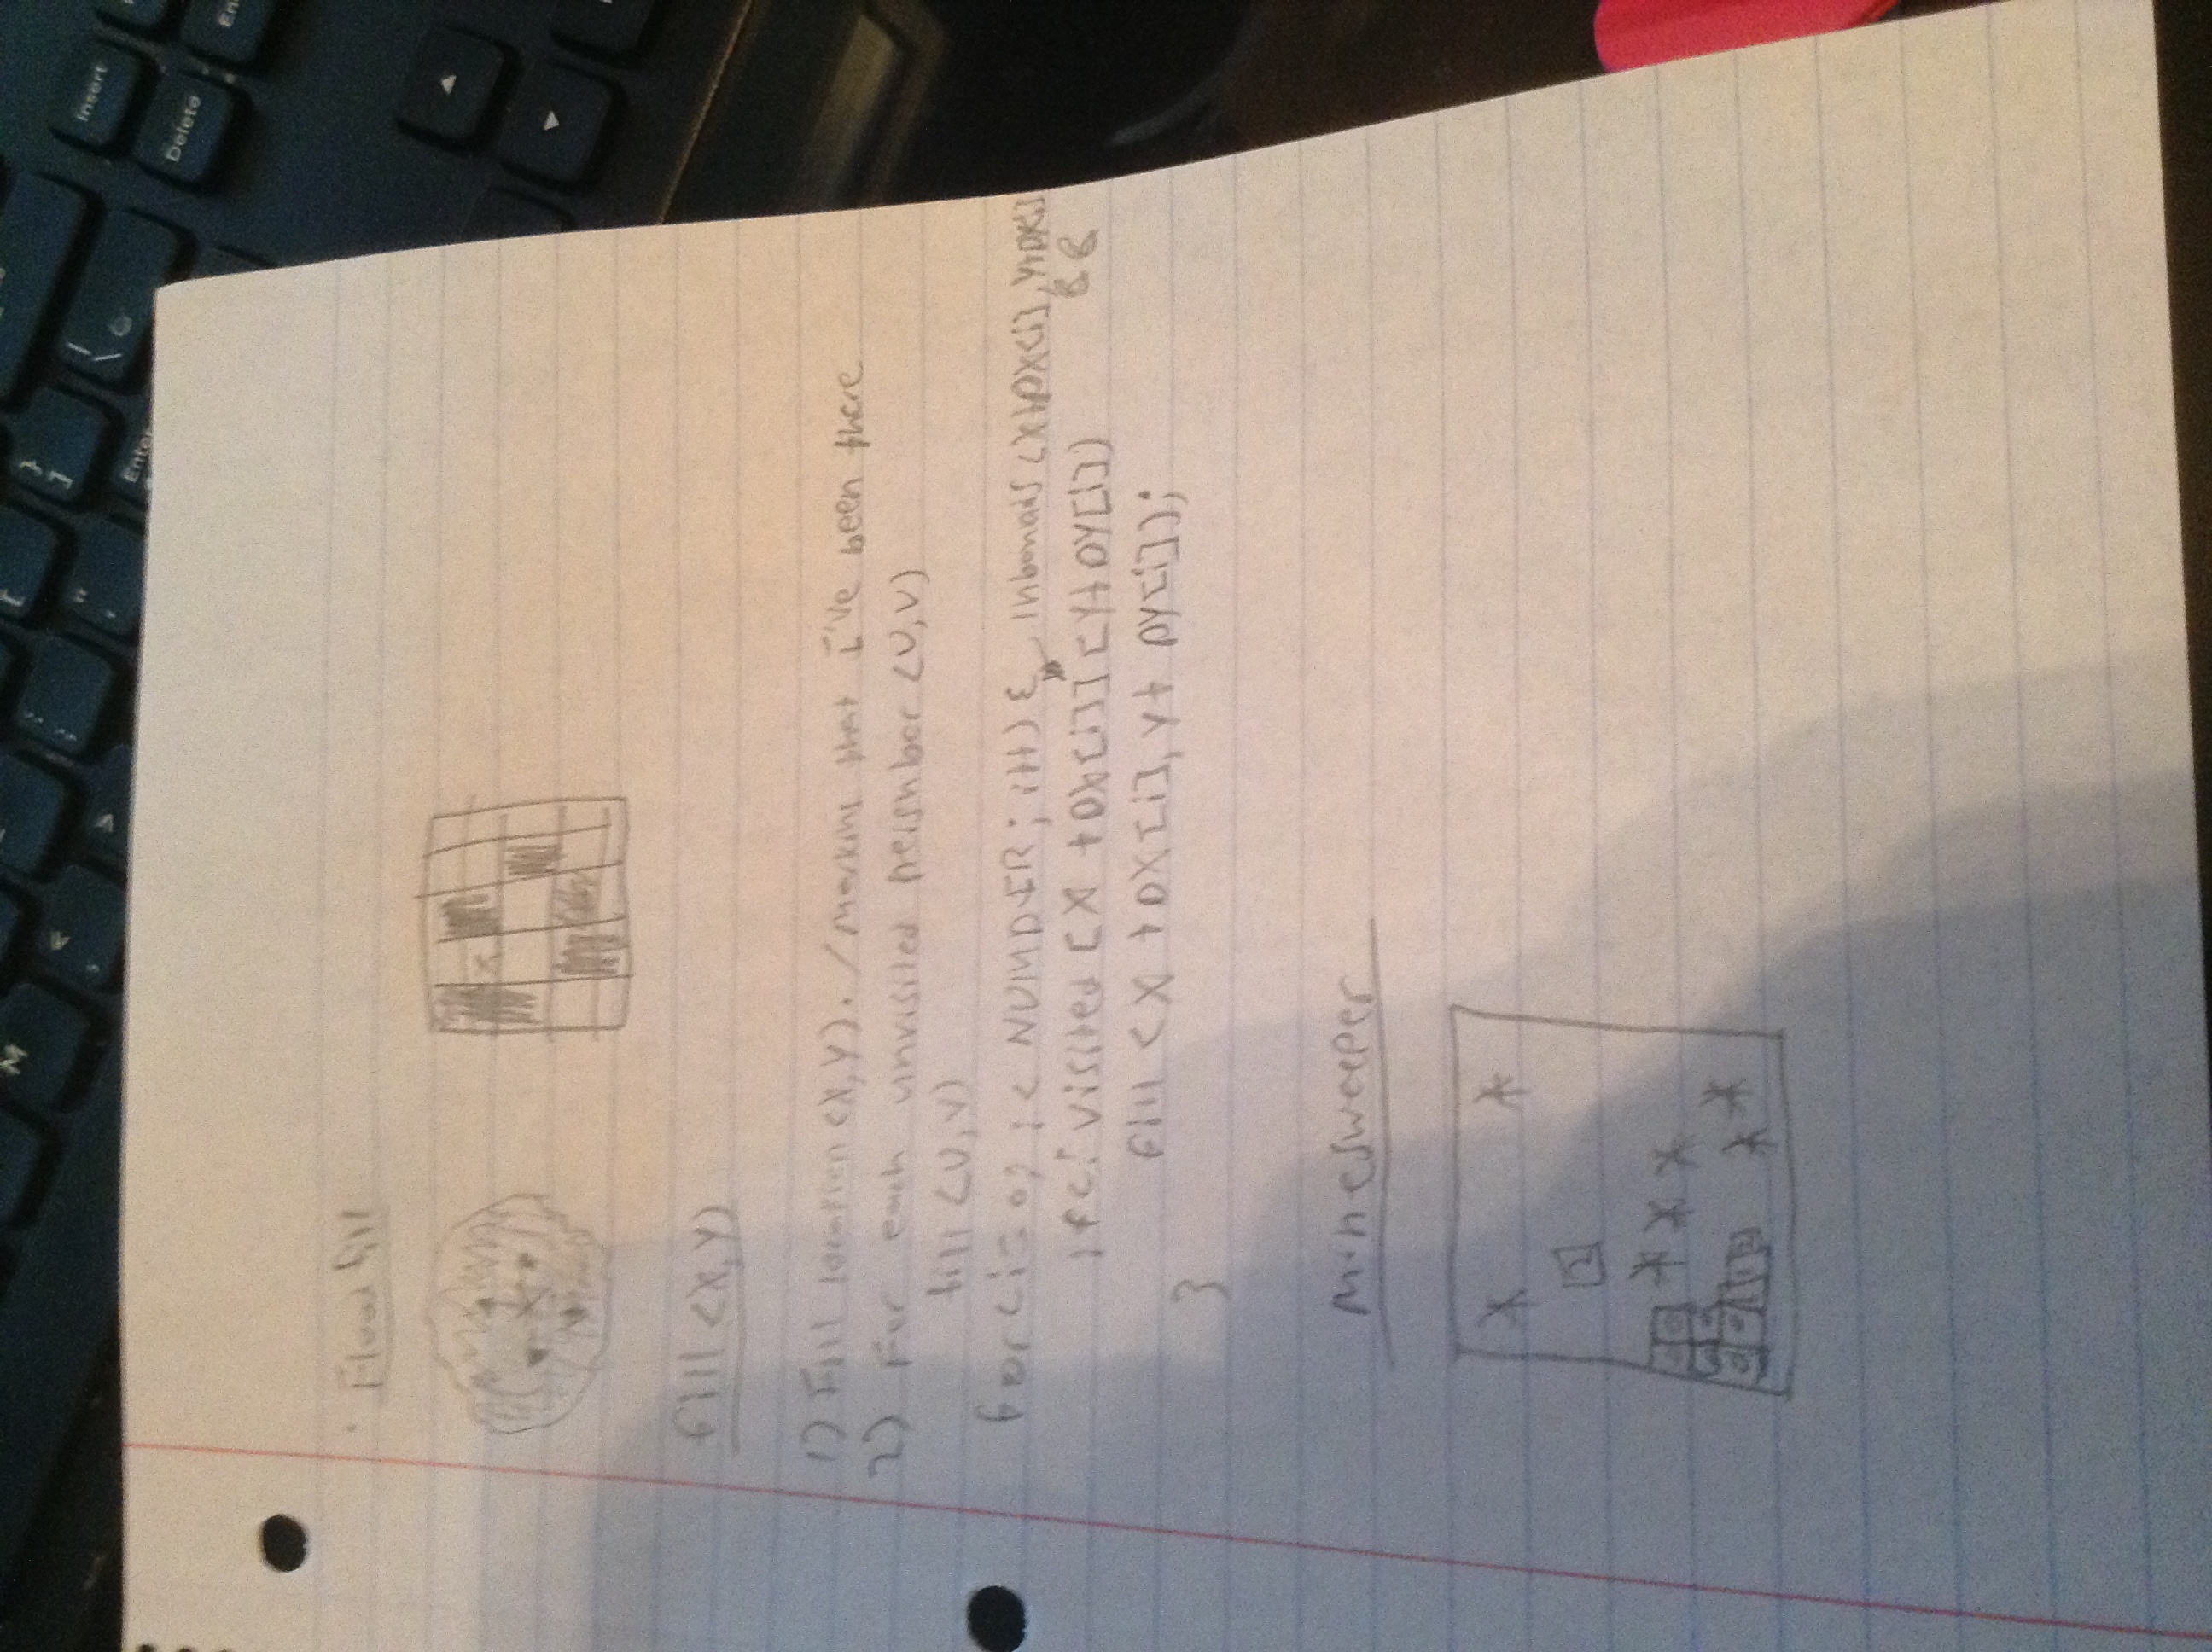 M
<
,
>
:
;
"
'
[
}
]
|
\
Insert
Enter
Delete
En
Flood fill
x
fill (X,Y)
1) Fill location (X,Y). / marking that I've been there
2) For each unvisited neighbor (U,V)
fill (U,V)
for(i=0; i< NUMDIR; i++) { inbounds (X+DX[i], Y+DX[i]
&&
if(! visited [X +DX[i]] [Y+DY[i])
fill (X +DX[i], Y+ DY[i]);
}
Minesweeper
2